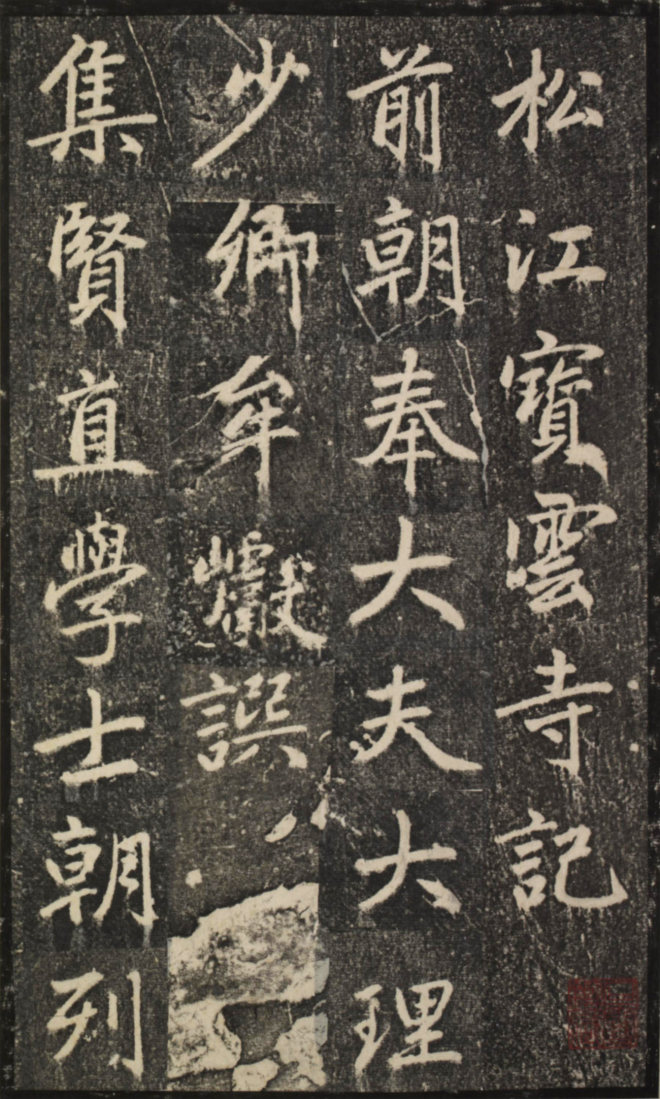 松江寶雲寺記
前朝奉大夫大理
少卿牟巘譔
集賢直學士朝列